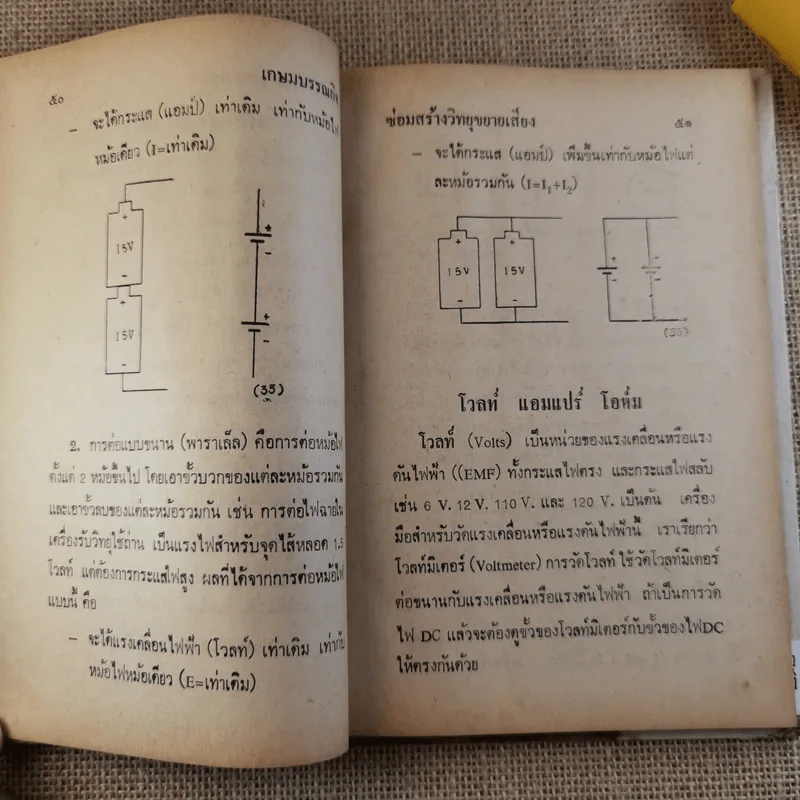 ๕๐
เกษมบรรณกิจ
- จะได้กระแส (แอมป์) เท่าเดิม เท่ากับหม้อไฟ
หม้อเดียว (I=เท่าเดิม)
+
15V
-
+
15V
-
+
-
+
-
(35)
2. การต่อแบบขนาน (พาราเล็ล) คือการต่อหม้อไฟ
ตั้งแต่ 2 หม้อขึ้นไป โดยเอาขั้วบวกของแต่ละหม้อรวมกัน
และเอาขั้วลบของแต่ละหม้อรวมกัน เช่น การต่อไฟฉายใน
เครื่องรับวิทยุใช้ถ่าน เป็นแรงไฟสำหรับจุดไส้หลอด 1.5
โวลท์ แต่ต้องการกระแสไฟสูง ผลที่ได้จากการต่อหม้อไฟ
แบบนี้ คือ
- จะได้แรงเคลื่อนไฟฟ้า (โวลท์) เท่าเดิม เท่ากับ
หม้อไฟหม้อเดียว (E=เท่าเดิม)
ซ่อมสร้างวิทยุขยายเสียง
๕๑
- จะได้กระแส (แอมป์) เพิ่มขึ้นเท่ากับหม้อไฟแต่
ละหม้อรวมกัน (I=I₁+I₂)
+
15V
-
+
15V
-
+
-
+
-
โวลท์ แอมแปร์ โอห์ม
โวลท์ (Volts) เป็นหน่วยของแรงเคลื่อนหรือแรง
ดันไฟฟ้า ((EMF) ทั้งกระแสไฟตรง และกระแสไฟสลับ
เช่น 6 V. 12 V. 110 V. และ 120 V. เป็นต้น เครื่อง
มือสำหรับวัดแรงเคลื่อนหรือแรงดันไฟฟ้านี้ เราเรียกว่า
โวลท์มิเตอร์ (Voltmeter) การวัดโวลท์ ใช้วัดโวลท์มิเตอร์
ต่อขนานกับแรงเคลื่อนหรือแรงดันไฟฟ้า ถ้าเป็นการวัด
ไฟ DC แล้วจะต้องดูขั้วของโวลท์มิเตอร์กับขั้วของไฟDC
ให้ตรงกันด้วย